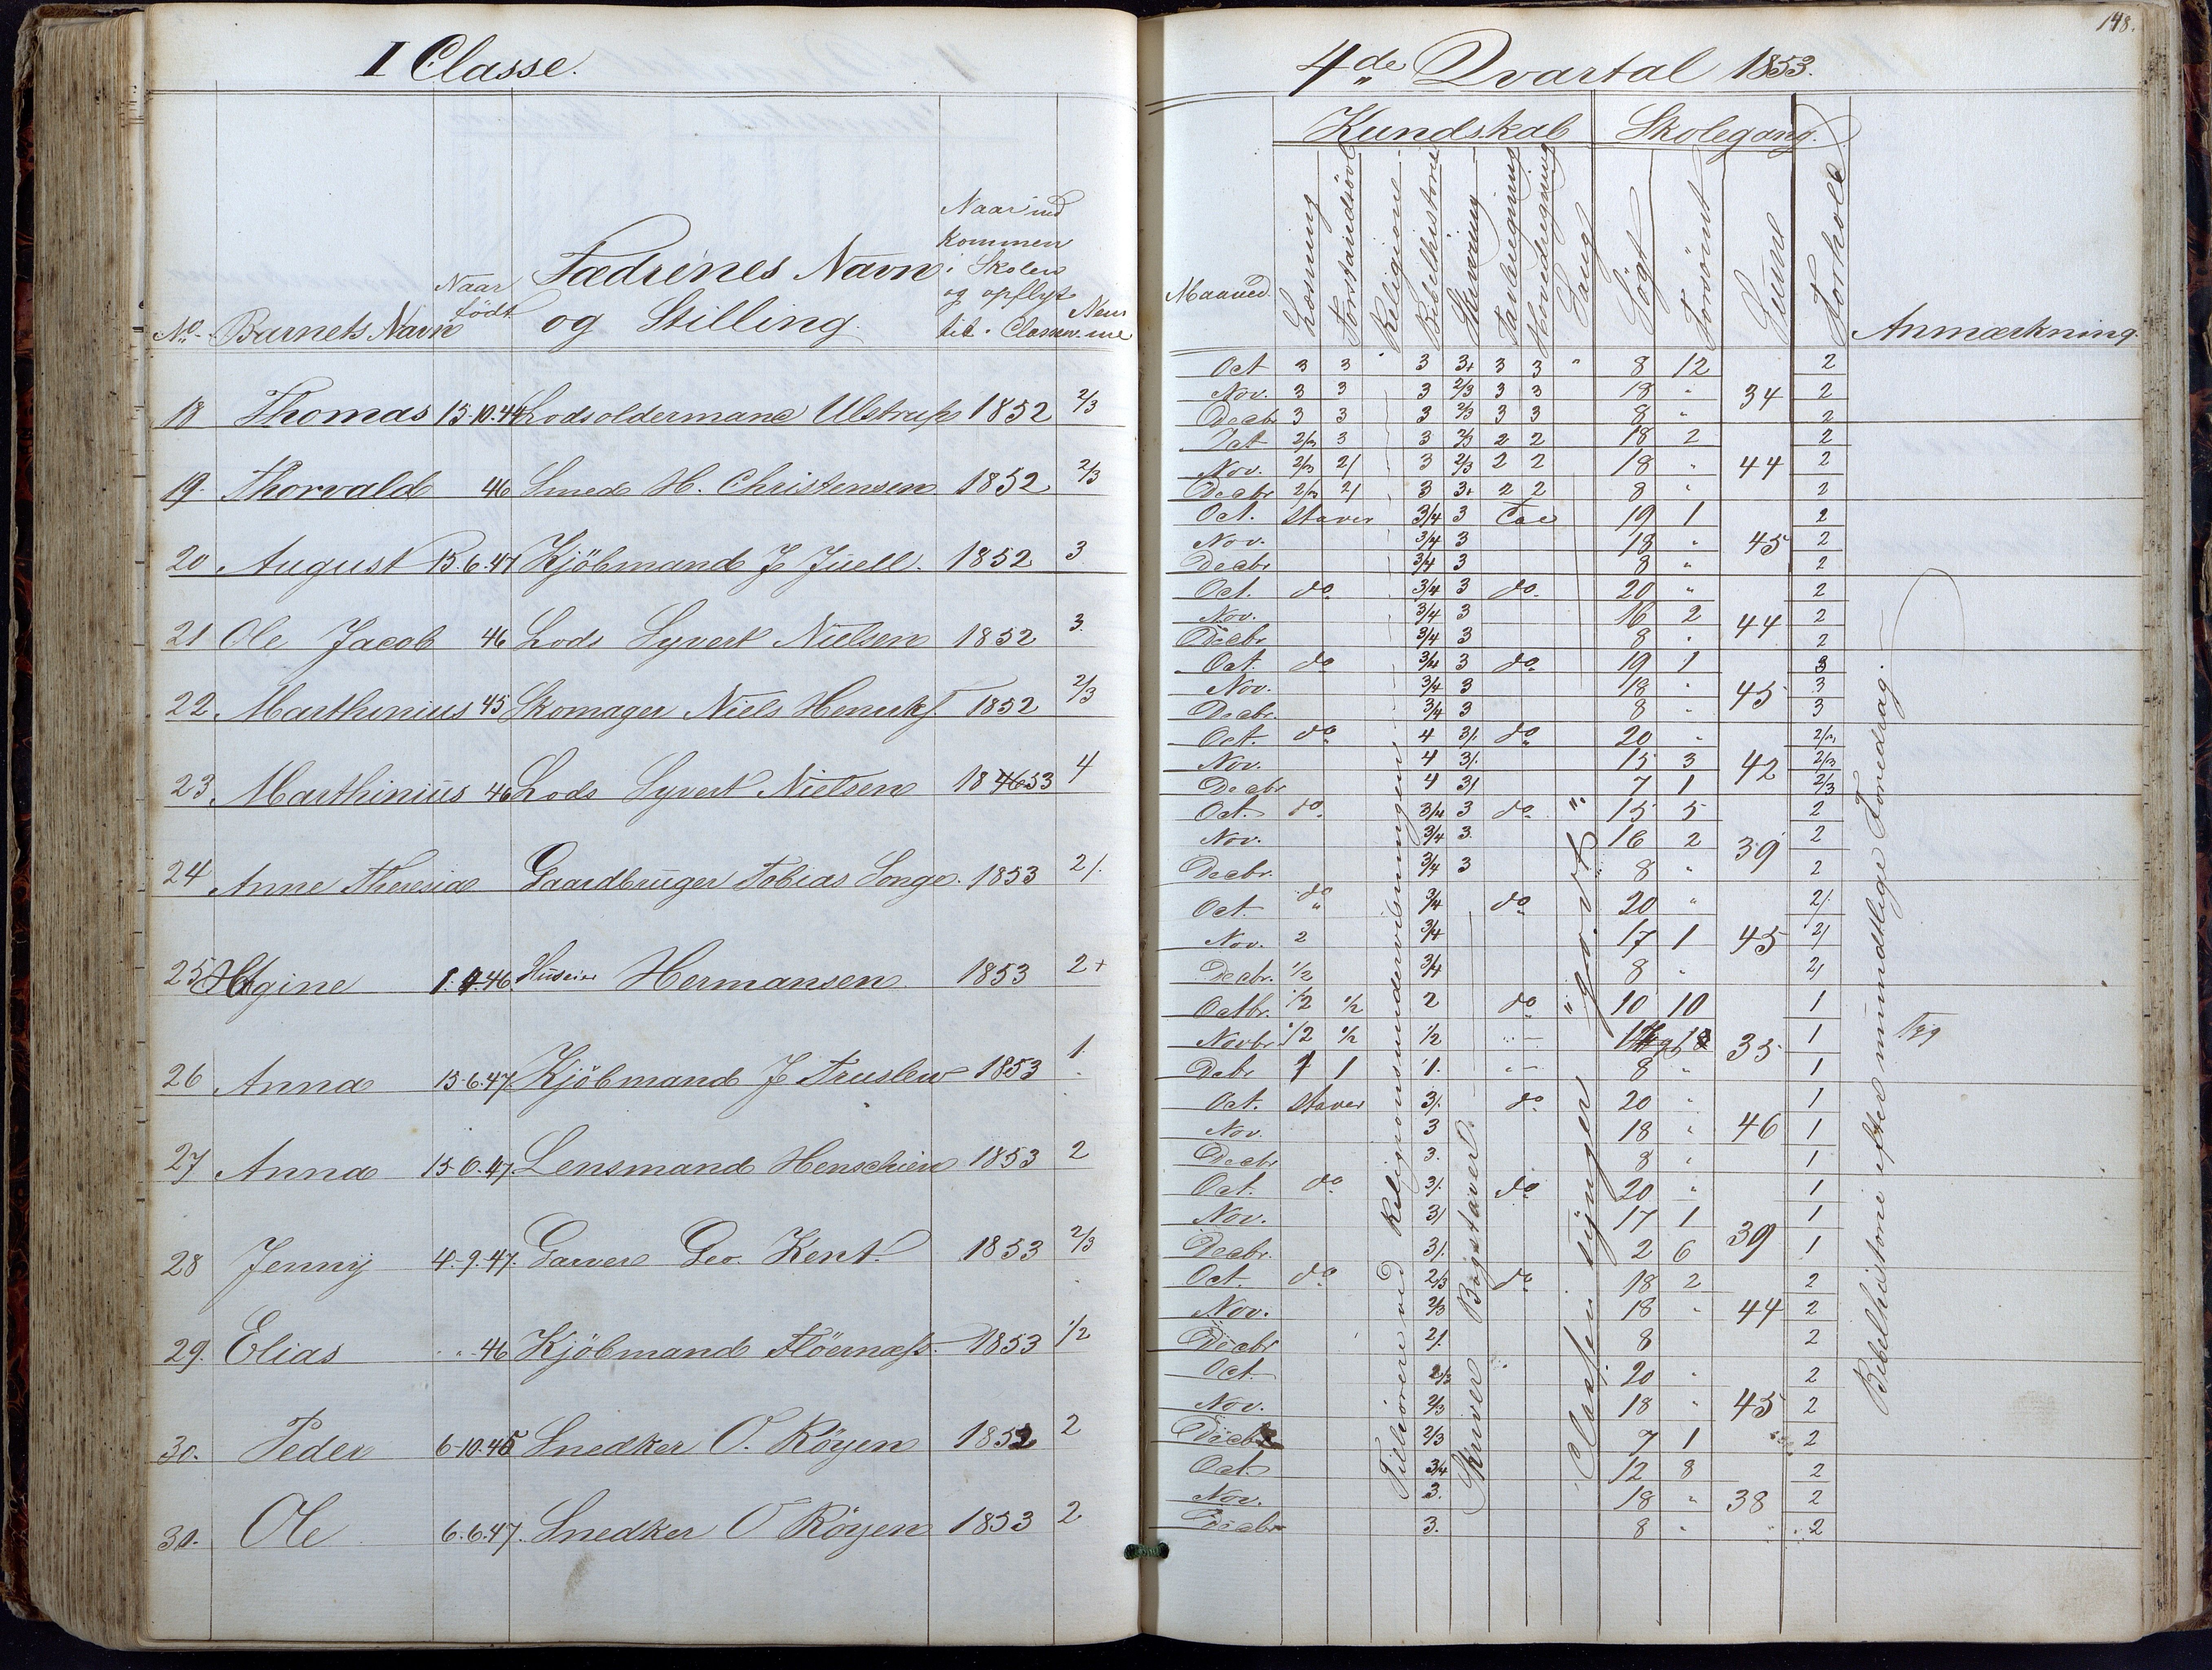 I Classe.
No. Barnets Navn Naar födt Fædrenes Navn og Stilling. Naar ind kommen i Skolen og opflyt til Classen. Nem me
18 Thomas 15.10.44 Lodsoldermand Ulstrup 1852 2/3
19. Thorvald 46 Smed H. Christensen 1852 2/3
20 August 15.6.47 Kjöbmand J Juell. 1852 3
21 Ole Jacob 46 Lods Syvert Nielsen 1852 3.
22. Marthinius 45 Skomager Niels Henriks. 1852 2/3
23 Marthinius 46 Lods Syvert Nielsen 53 4
24 Anne Theresia Gaardbruger Tobias Songe. 1853 2/.
25 1.4.46. Huseier Hermansen 1853 2+
26 Anna 15.6.47 Kjöbmand J Truslew 1853 1.
27 Anna 15.0.47. Lensmand Henschien 1853 2
28 Jenny 4.9.47. Garver Geo. Kent. 1853 2/3
29. Elias " " 46 Kjöbmand 1853 1/2
30. Peder 6.10.45 Snedker O. Röyen 1852 2
30. Ole 6.6.47. Snedker O Röyen 1853 2
148.
4de Qvartal 1853.
Kundskab Skolegang.
Maaned. Læsning Forstandsövl Religion Bibelhistorie Skrivning Tavleregning Hovedregning Sang Sögt Forsömt Sum Forhold Anmærkning.
Oct 3 3 " 3 3+ 3 3 " 8 12 2
Nov. 3 3 3 2/3 3 3 18 " 34 2
Decbr 3 3 3 2/3 3 3 8 " 2
Oct 2/3 3 3 2/3 2 2 18 2 2
Nov. 2/3 2/ 3 2/3 2 2 18 " 44 2
Decbr 2/3 2/ 3 3+ 2 2 8 " 2
Oct. staver 3/4 3 19 1 2
Nov. 3/4 3 18 " 45 2
Decbr 3/4 3 8 " 2
Oct. do 3/4 3 do 20 " 2
Nov. 3/4 3 16 2 44 2
Decbr 3/4 3 8 " 2
Oct. do 3/4 3 do 19 1 3
Nov. 3/4 3 18 " 45 3
Decbr. 3/4 3 8 " 3
Oct. do 4 3/. do 20 " 2/3
Nov. 4 3/. 15 3 42 2/3
Decbr 4 3/ 7 1 2/3
Oct. do 3/4 3 do " 15 5 2
Nov. 3/4 3. 16 2 39 2
Decbr. 3/4 3 8 " 2
Oct. do 3/4 do 20 " 2/.
Nov. 2 3/4 17 1 45 2/
Decbr. 1/2 3/4 8 " 2/
Octbr. 1/2 1/2 2 do " 10 10 1
Novbr 1/2 1/2 1/2 " 35 1
Debr 1 1 1. " 8 " 1
Oct. staver 3/. do 20 " 1
Nov. 3 18 " 46 1
Decbr 3. 8 " 1
Oct. do 3/. do 20 " 1
Nov. 3/ 17 1 39 1
Decbr. 3/. 2 6 1
Oct. do 2/3 do 18 2 2
Nov. 2/3 18 " 44 2
Decbr 2/. 8 2
Oct. 2/3 20 " 2
Nov. 2/3 18 " 45 2
Decbr 2/3 7 1 2
Oct. 3/4 12 8 2
Nov. 3. 18 " 38 2
Decbr 3. 8 " 2
Tilhörere ved Religionsundervisningen
Skriver Bogstaver.
Classen synger godt
Bibelhistorie efter mundtlige Foredrag.